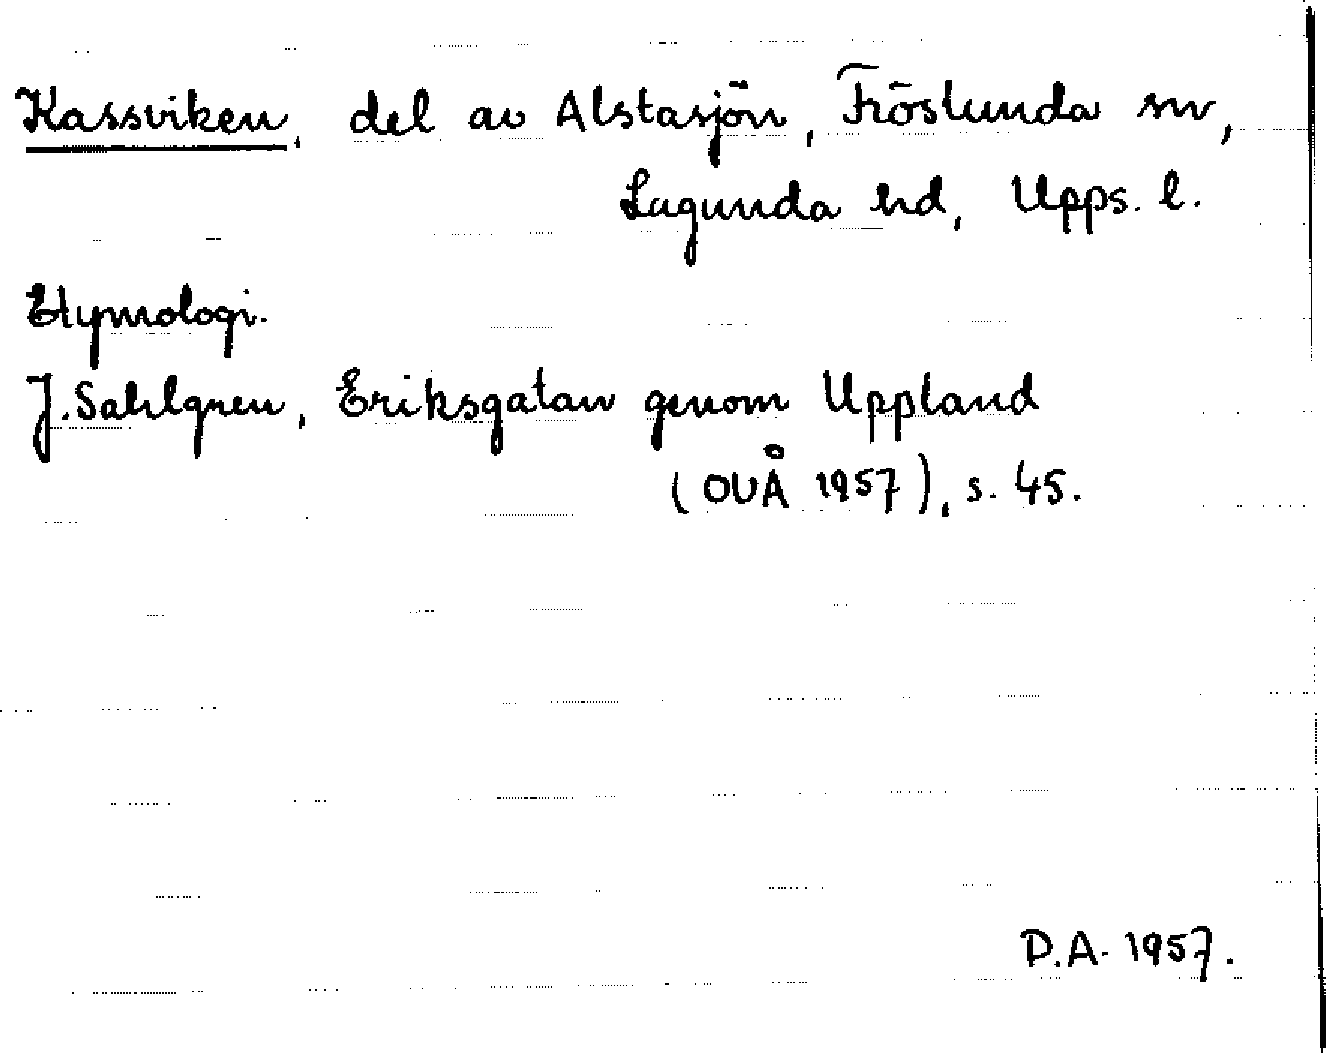 Kassviken, del av Alstasjön, Fröslunda sn,
Lagunda hd, Upps. l.
Etymologi.
J. Sahlgren, Eriksgatan genom Uppland
(OUÅ 1957), s. 45.
D.A. 1957.